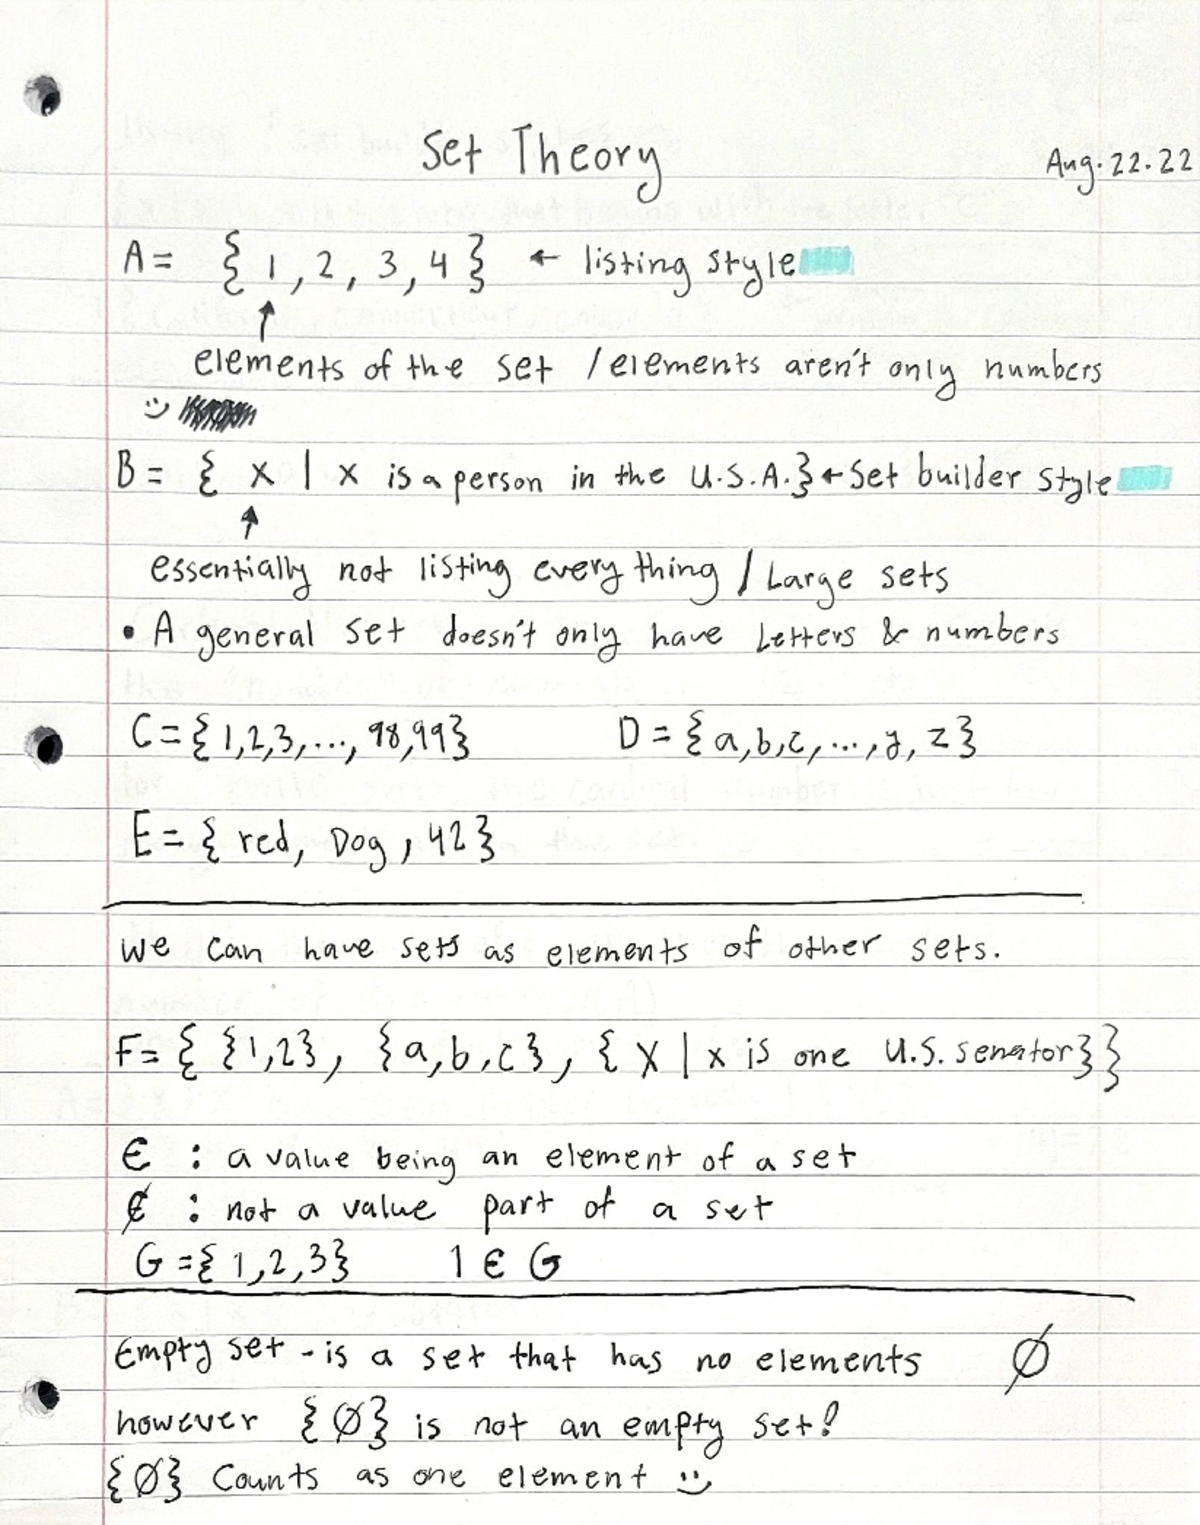 Set Theory
Aug. 22. 22
A = { 1, 2, 3, 4 } ← listing style
↑
elements of the set / elements aren't only numbers
:)
B = { x | x is a person in the U.S.A. } ← Set builder style
↑
essentially not listing every thing / Large sets
• A general set doesn't only have Letters & numbers
C = { 1,2,3, ..., 98,99 } D = { a,b,c, ..., y, z }
E = { red, Dog, 42 }
we can have sets as elements of other sets.
F = { {1,2}, {a,b,c}, { X | x is one U.S. senator } }
∈ : a value being an element of a set
∉ : not a value part of a set
G = { 1,2,3 } 1 ∈ G
Empty set - is a set that has no elements ∅
however {∅} is not an empty set!
{∅} Counts as one element :)